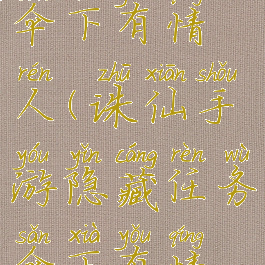 伞下有情
rén zhū xiān shǒu
人(诛仙手
yóu yǐn cáng rèn wù
游隐藏任务
sǎn xià yǒu qíng
伞下有情